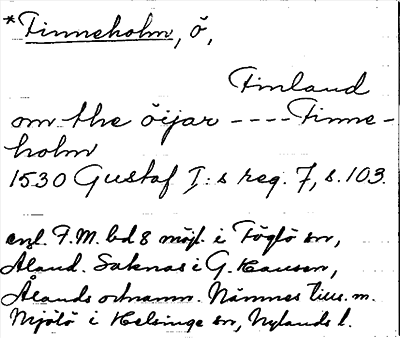 *Finneholm, ö,
Finland
om the öijar ---- Finne-
holm
1530 Gustaf I:s reg. 7, s. 103.
enl. F.M. bd 8 möjl. i Föglö sn,
Åland. Saknas i G. Hausen,
Ålands ortnamn. Nämnes tills. m.
Mjölö i Helsinge sn, Nylands l.